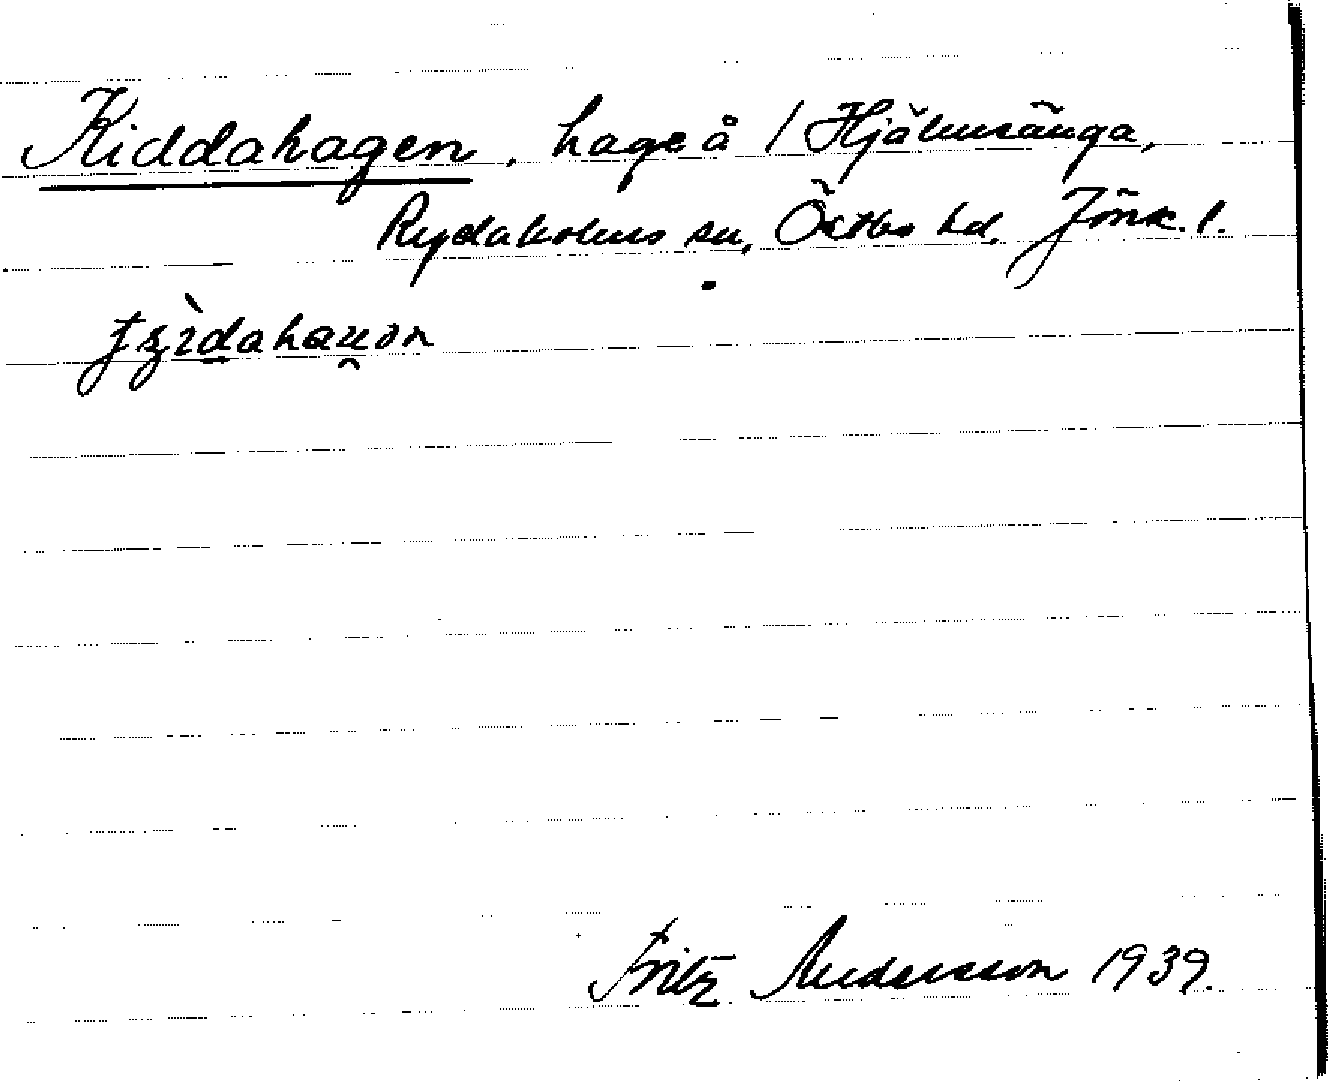 Kiddahagen, hage å / Hjälmsänga,
Rydaholms sn, Östbo hd, Jönk. l.
Fritz Andersson 1939.